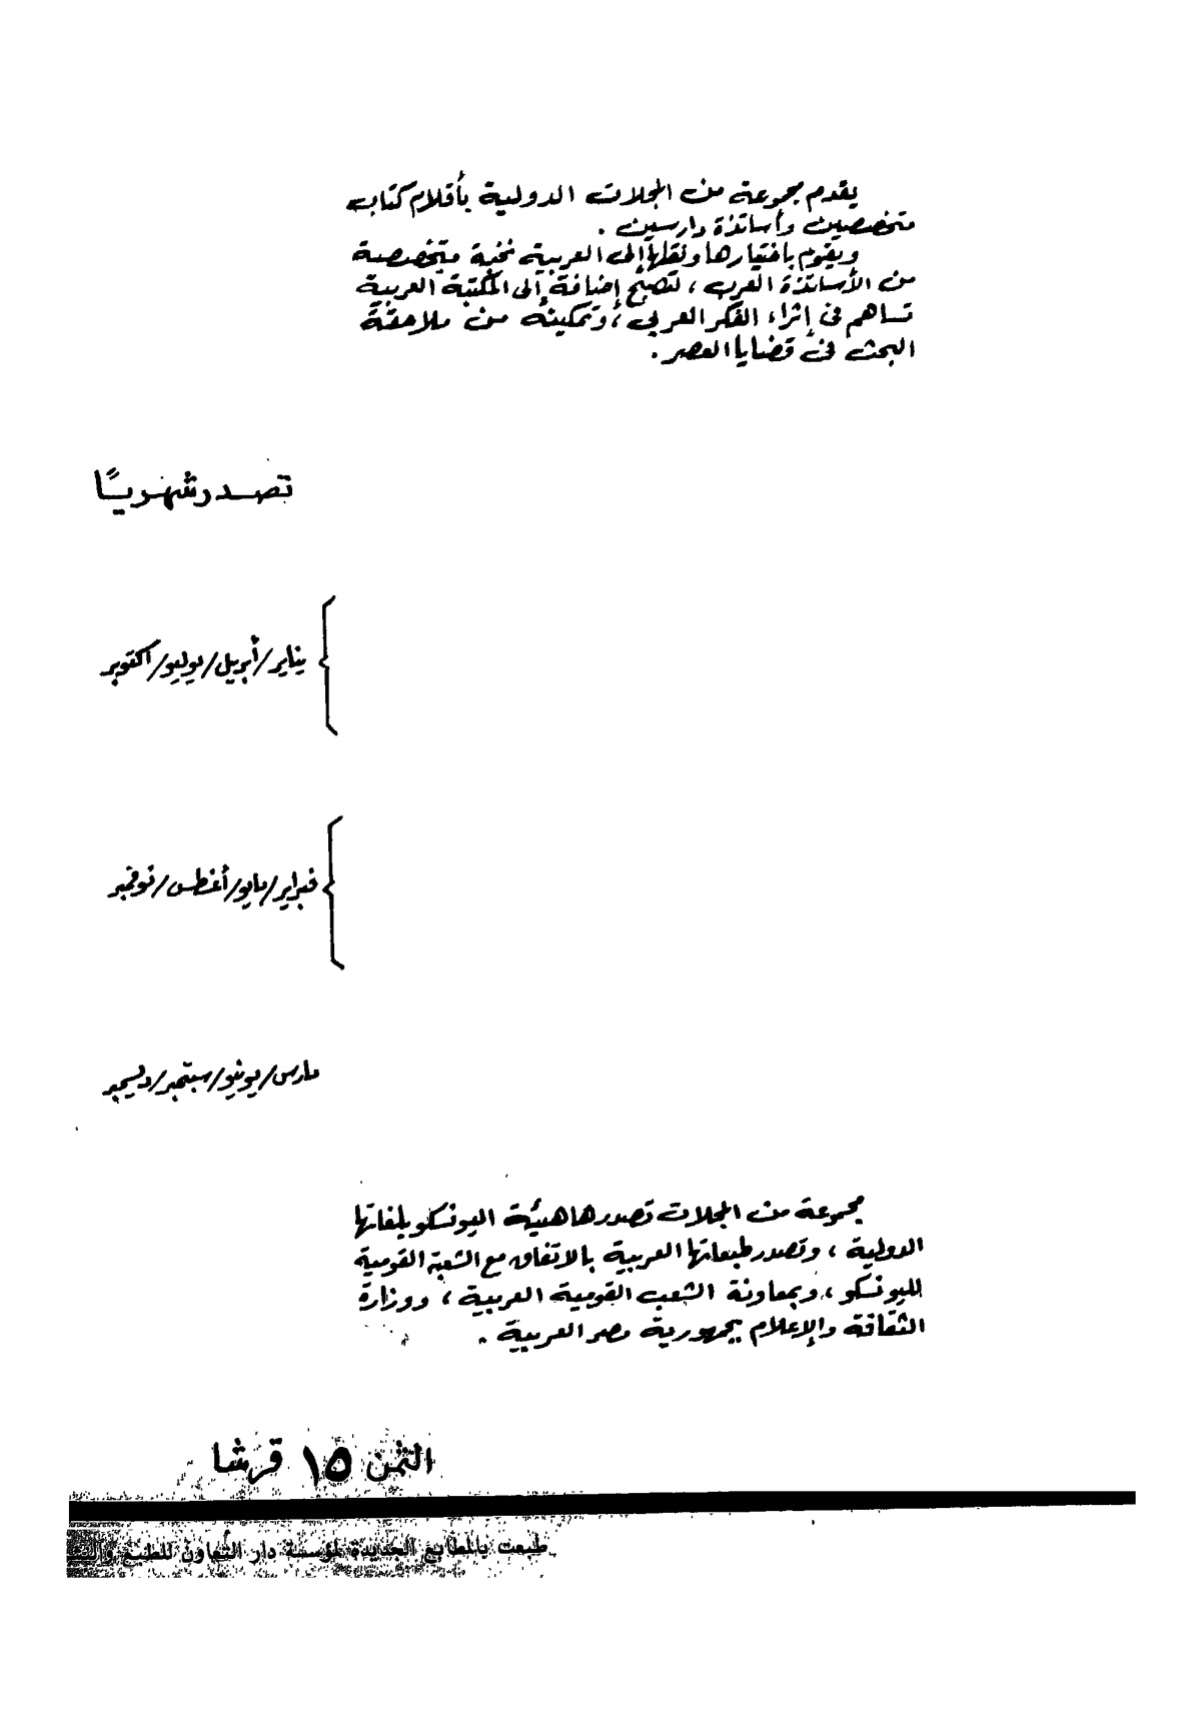 يقدم مجموعة من المجلات الدولية بأقلام كتاب
متخصصين وأساتذة دارسين .
ويقوم باختيارها ونقلها إلى العربية نخبة متخصصة
من الأساتذة العرب ، لتصبح إضافة إلى المكتبة العربية
تساهم فى إثراء الفكر العربى ، وتمكينه من ملاحقة
البحث فى قضايا العصر .
تصدر شهريًا
يناير / أبريل / يوليو / أكتوبر
فبراير / مايو / أغسطس / نوفمبر
مارس / يونيو / سبتمبر / ديسمبر
مجموعة من المجلات تصدرها هيئة اليونسكو بلغاتها
الدولية ، وتصدر طبعاتها العربية بالاتفاق مع الشعبة القومية
لليونسكو ، وبمعاونة الشعب القومية العربية ، ووزارة
الثقافة والإعلام بجمهورية مصر العربية .
الثمن ١٥ قرشا
طبعت بالمطابع الجديدة لمؤسسة دار التعاون للطبع